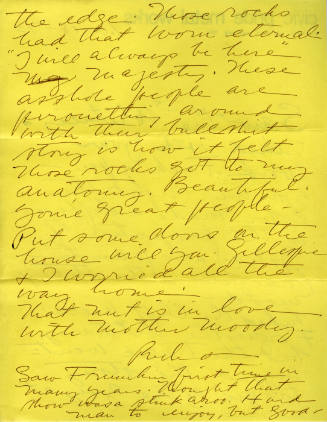 the edge. Those rocks
had that worn eternal.
"I will always be here"
majesty. These
asshole people are
pirouetting around
with their bullshit
story is how it felt
those rocks got to my
anatomy. Beautiful.
You're great people -
Put some doors on the
house will you. Gillespie
& I worried all the
way home.
That nut is in love
with Mother Moody.
Saw first time in
many years. thought that
show was a stinkaroo. Hard
man to enjoy, but good -